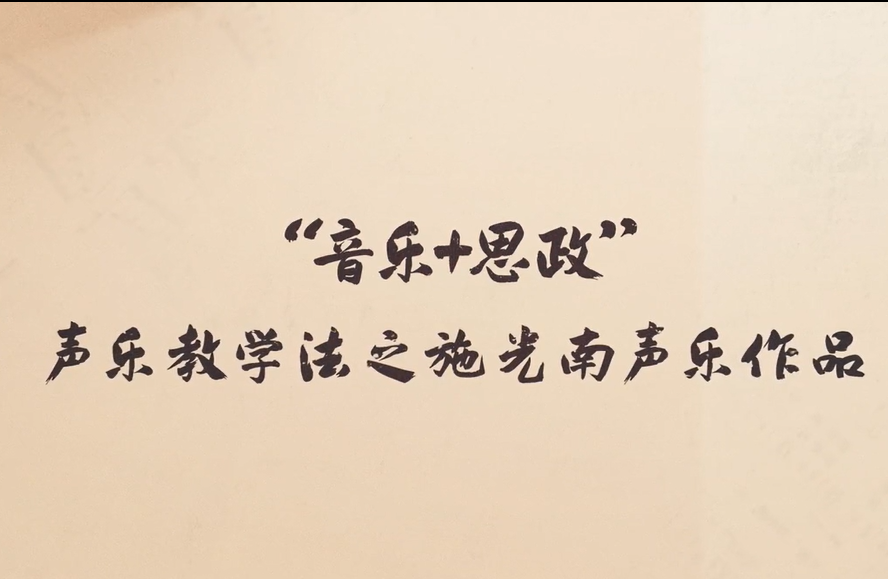 “音乐+思政”
声乐教学法之施光南声乐作品